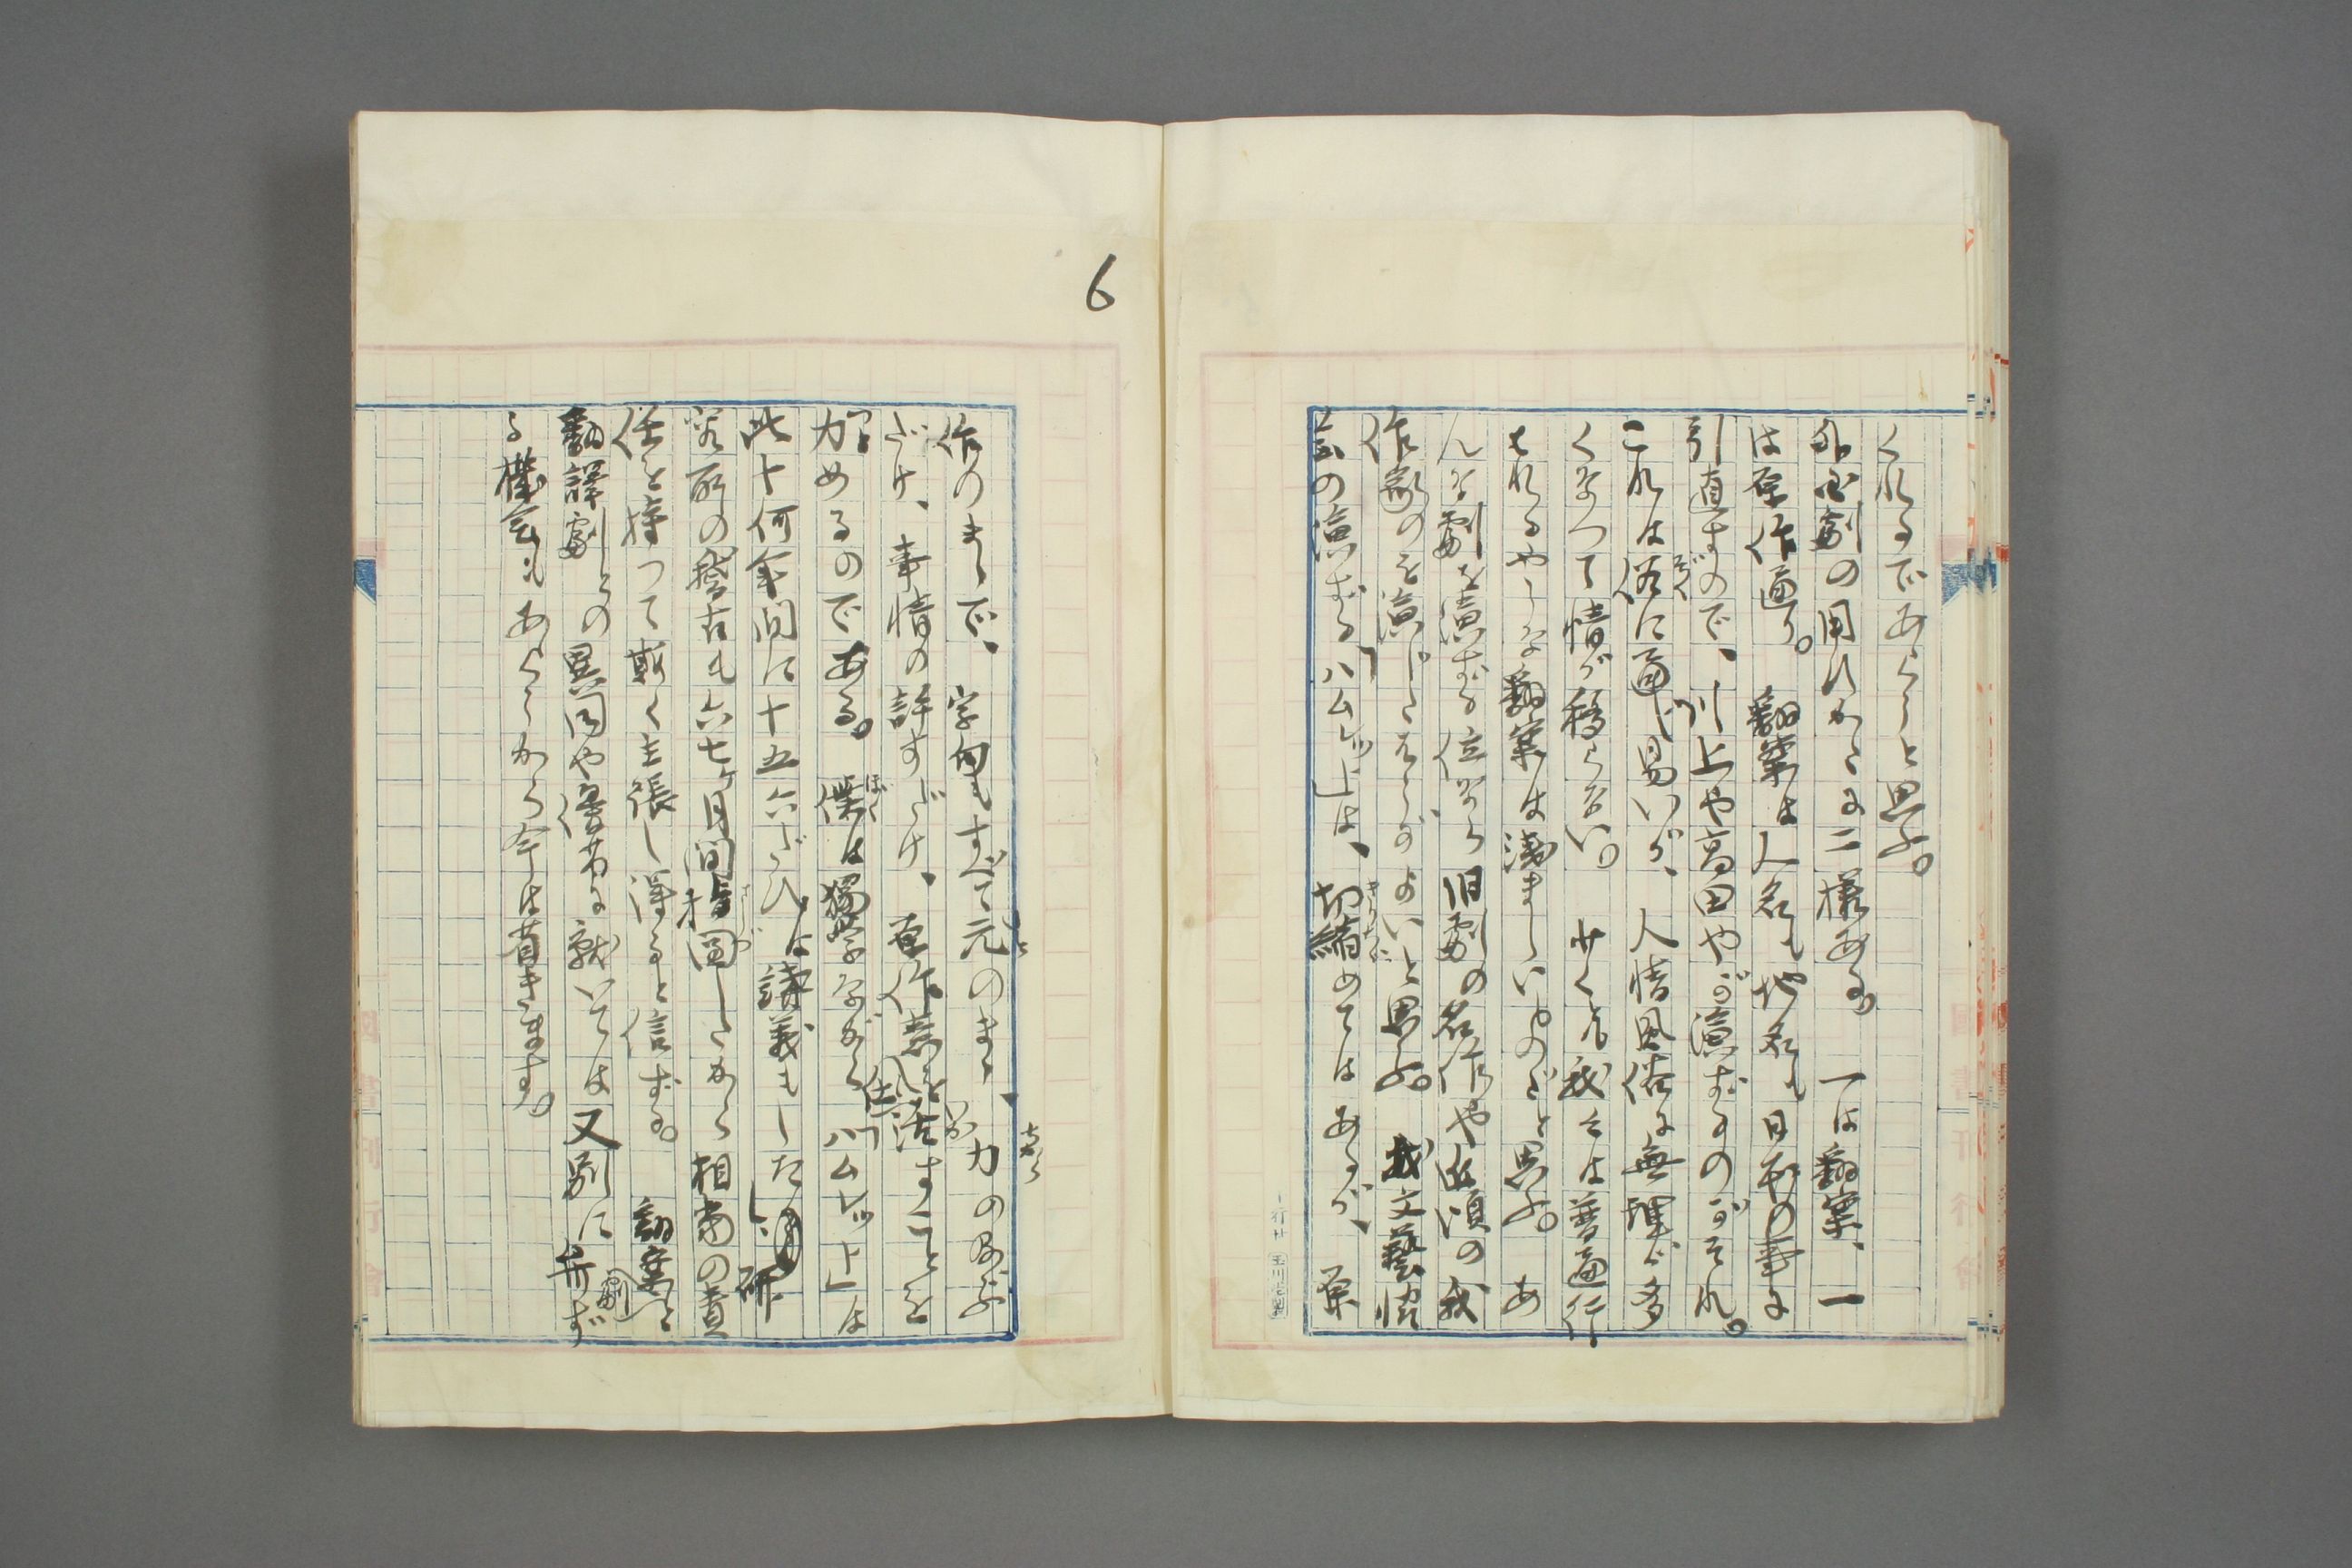 くれるであらうと思ふ。
外国劇の用ひかたに二様ある。一は翻案、一
は原作通り。翻案は人名も地名も日本の事に
引直すので、川上や高田やが演ずるのがそれ。
これは俗に通じ易いが、人情風俗に無理が多
くなつて情が移らない。少くも我々は普通行
はれるやうな翻案は浅ましいものだと思ふ。あ
んな劇を演ずる位なら旧劇の名作や近頃の我
作家のを演じたはうがよいと思ふ。我文藝協
会の演ずる「ハムレット」は、切縮めてはあるが、原
ぞく
きりちぢ
一行廿
6
作のまゝで、字句もすべて元のまゝ、力の及ぶ
だけ、事情の許すだけ、原作の意を活すことを
力めるのである。僕は獨学ながら「ハムレット」は
此十何年間に十五六ぺんは講義もしたし、研
究所の稽古も六七ヶ月間指図したから相当の責
任を持つて斯く主張し得ると信ずる。翻案劇と
翻譯劇との異同や優劣に就いては又別に弁ず
る機会もあらうから今は省きます。
もと
ちから
ぼく
さしづ